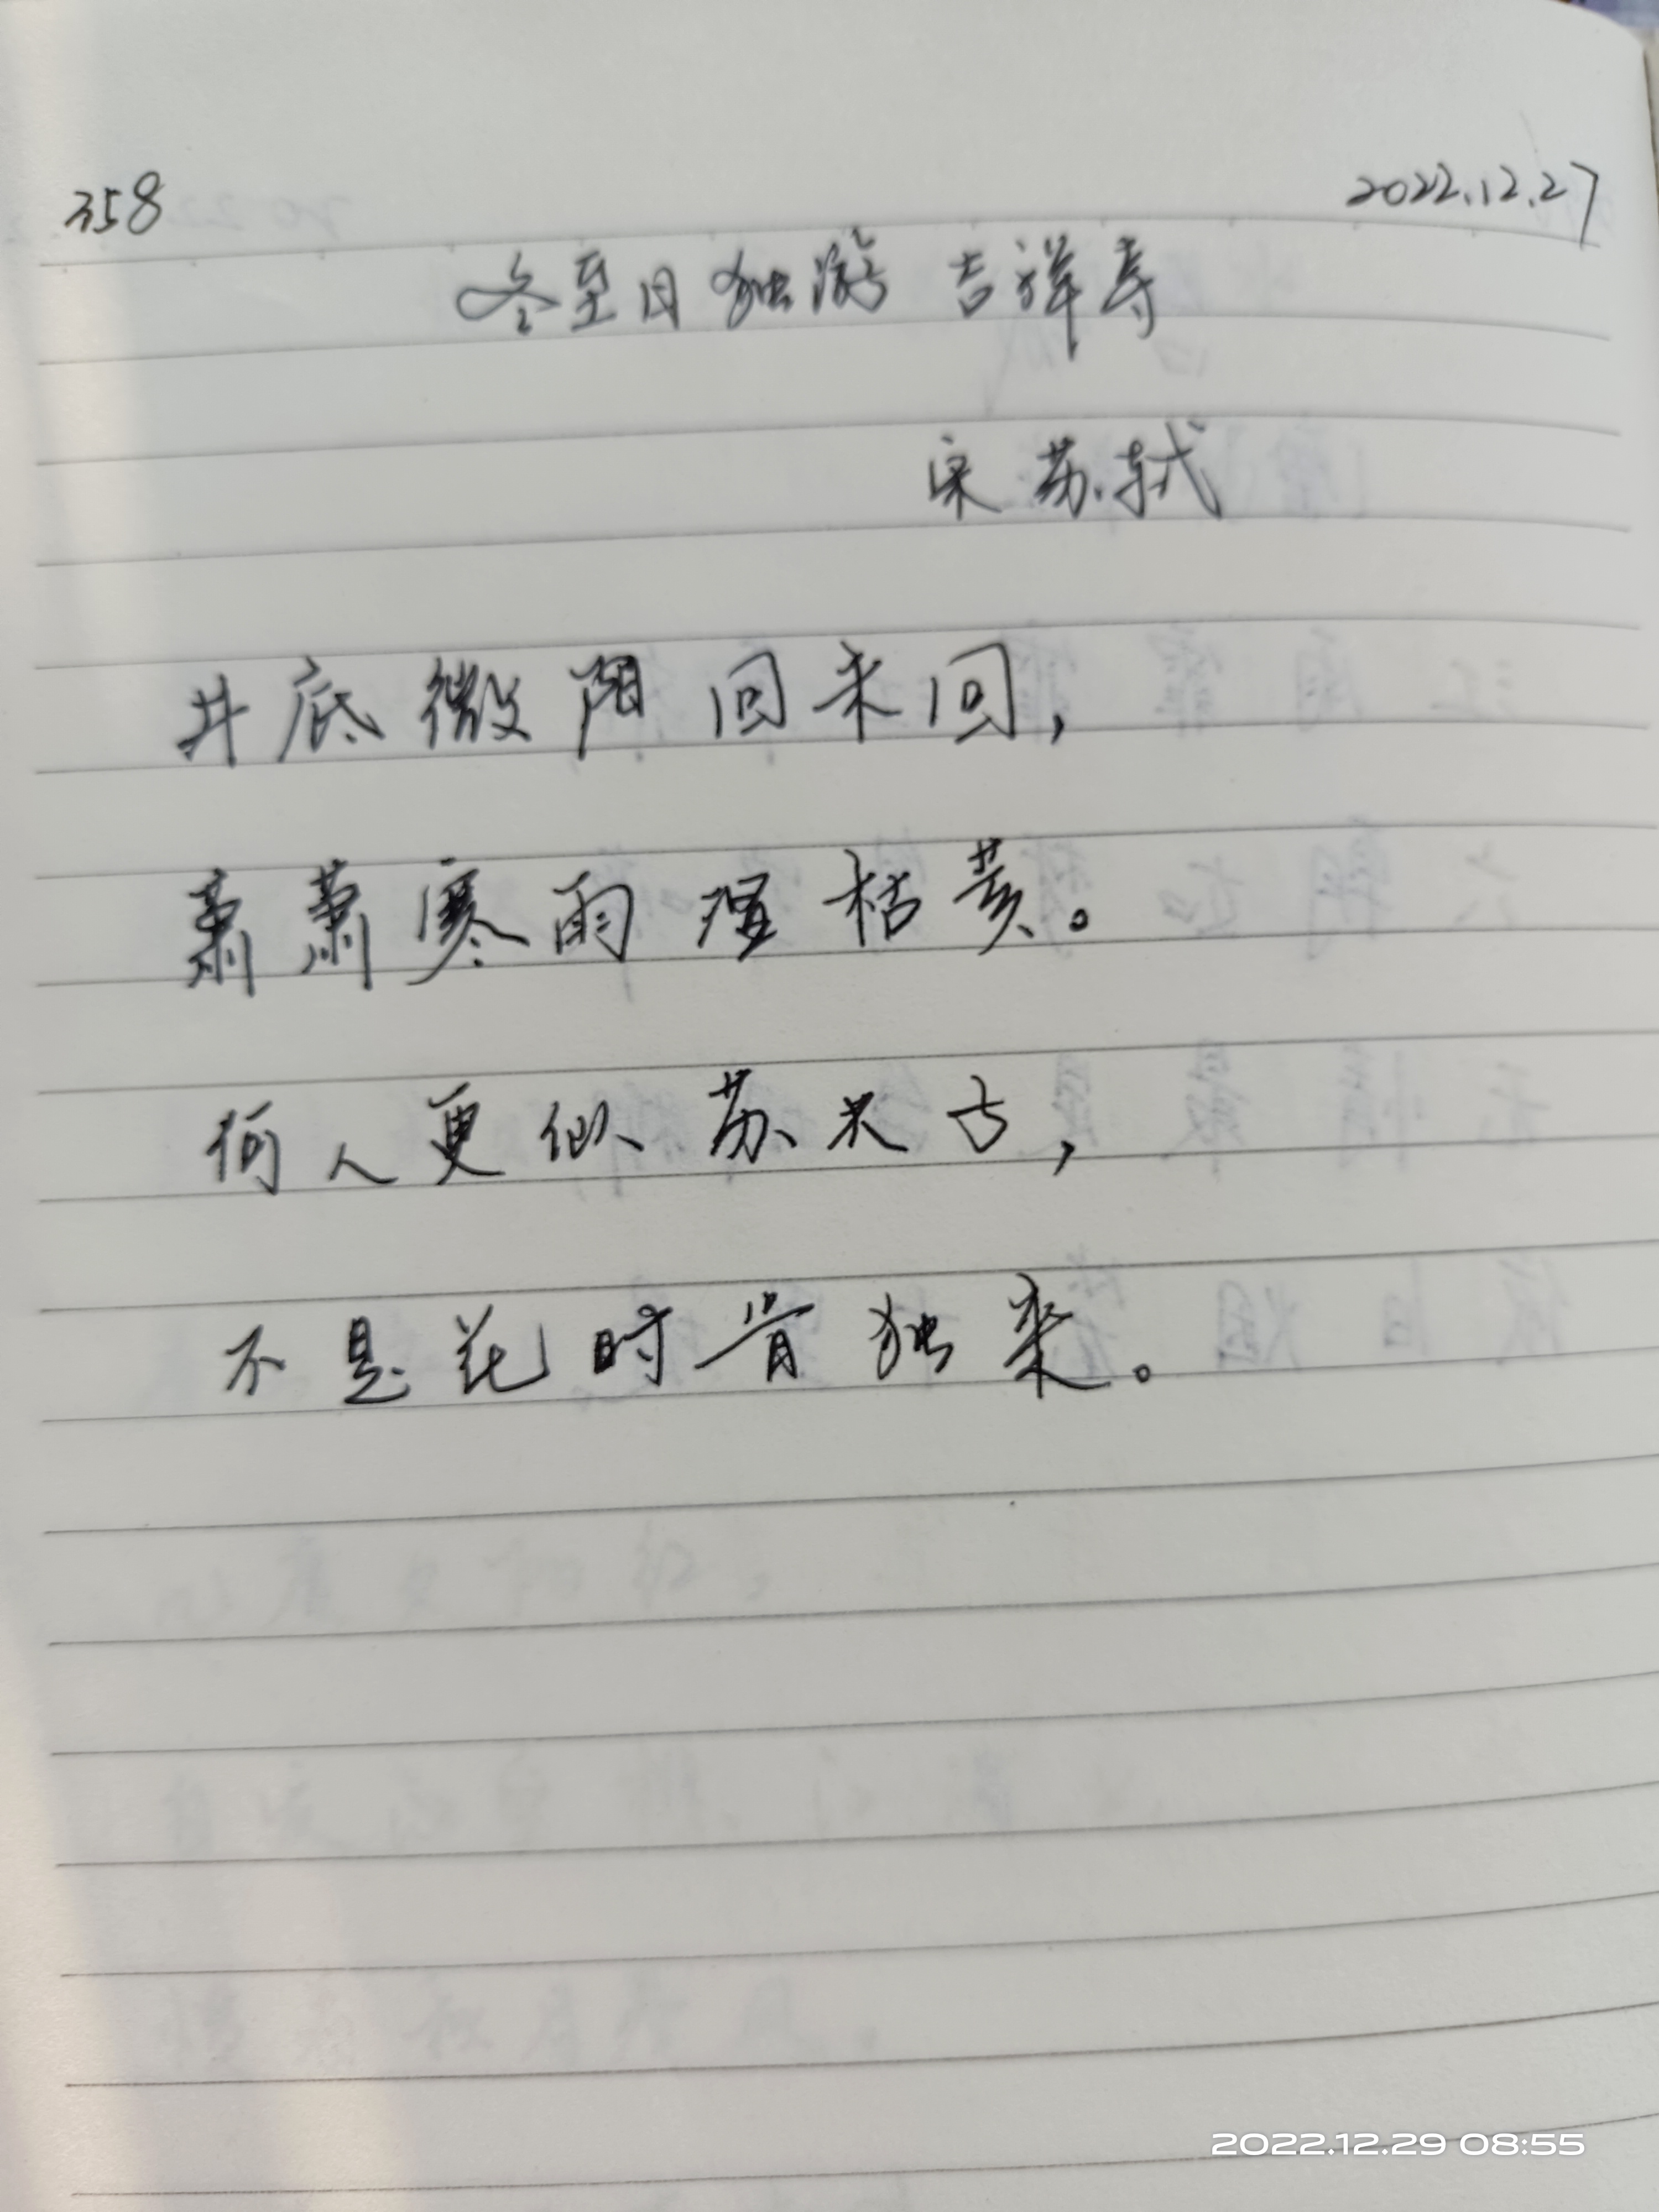 358 2022.12.27
冬至日独游吉祥寺
宋 苏轼
井底微阳回未回，
萧萧寒雨湿枯荄。
何人更似苏夫子，
不是花时肯独来。
2022.12.29 08:55